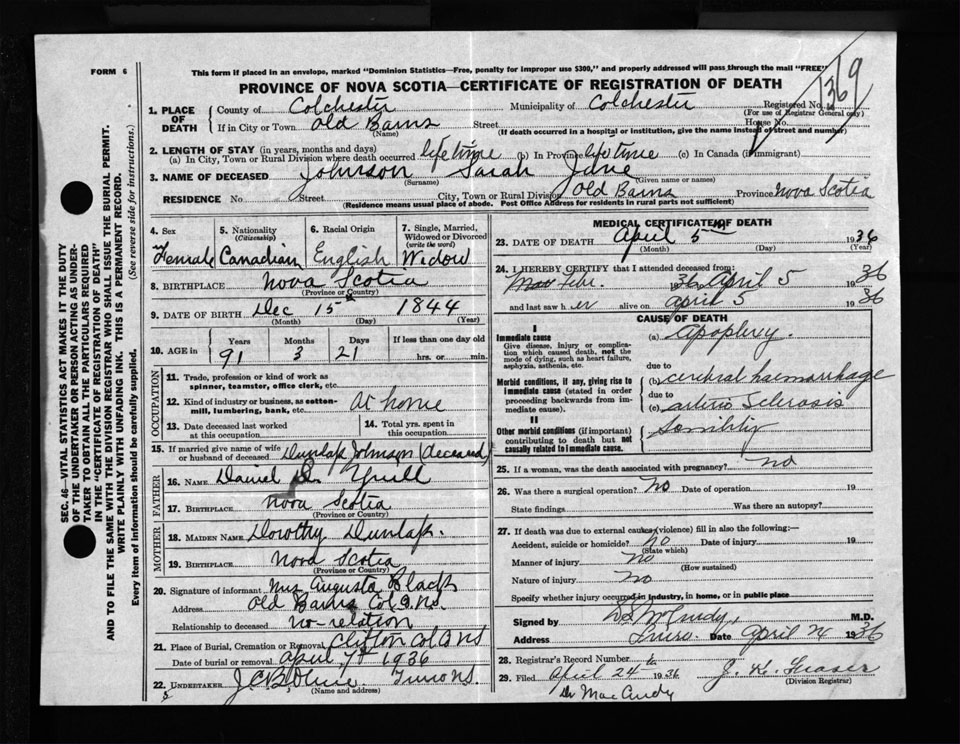 FORM 6
This form if placed in an envelope, marked "Dominion Statistics—Free, penalty for improper use $300," and properly addressed will pass through the mail "FREE"
PROVINCE OF NOVA SCOTIA—CERTIFICATE OF REGISTRATION OF DEATH
1. PLACE OF DEATH County of Colchester Municipality of Colchester Registered No. 1369
(For use of Registrar General only)
If in City or Town Old Barns Street House No.
(Name) (If death occurred in a hospital or institution, give the name instead of street and number)
2. LENGTH OF STAY (in years, months and days)
(a) In City, Town or Rural Division where death occurred lifetime (b) In Province lifetime (c) In Canada (if immigrant)
3. NAME OF DECEASED Johnson Sarah Jane
(Surname) (Given name or names)
RESIDENCE No. Street City, Town or Rural Division Old Barns Province Nova Scotia
(Residence means usual place of abode. Post Office Address for residents in rural parts not sufficient)
4. Sex 5. Nationality (Citizenship) 6. Racial Origin 7. Single, Married, Widowed or Divorced (write the word)
Female Canadian English Widow
8. BIRTHPLACE Nova Scotia
(Province or Country)
9. DATE OF BIRTH Dec 15 1844
(Month) (Day) (Year)
10. AGE in Years Months Days If less than one day old
91 3 21 hrs. or min.
OCCUPATION
11. Trade, profession or kind of work as spinner, teamster, office clerk, etc.
12. Kind of industry or business, as cotton-mill, lumbering, bank, etc. At home
13. Date deceased last worked at this occupation 14. Total yrs. spent in this occupation
15. If married give name of wife or husband of deceased Dunlap Johnson (deceased)
FATHER
16. NAME Daniel Yuill
17. BIRTHPLACE Nova Scotia
(Province or Country)
MOTHER
18. MAIDEN NAME Dorothy Dunlap.
19. BIRTHPLACE Nova Scotia
(Province or Country)
20. Signature of informant Mrs Augusta Black
Address Old Barns Col. Co. N.S.
Relationship to deceased no-relation
21. Place of Burial, Cremation or Removal Clifton Col Co NS
Date of burial or removal April 7th 1936
22. UNDERTAKER Truro NS.
(Name and address)
MEDICAL CERTIFICATE OF DEATH
23. DATE OF DEATH April 5th 1936
(Month) (Day) (Year)
24. I HEREBY CERTIFY that I attended deceased from:
Febr. 1936 April 5 1936
and last saw her alive on April 5 1936
CAUSE OF DEATH
I
Immediate cause (a) Apoplexy.
Give disease, injury or complication which caused death, not the mode of dying, such as heart failure, asphyxia, asthenia, etc.
due to
Morbid conditions, if any, giving rise to immediate cause (stated in order proceeding backwards from immediate cause). (b) cerebral haemorrhage
due to
(c) arterio Sclerosis
II
Other morbid conditions (if important) contributing to death but not causally related to immediate cause. Senility
25. If a woman, was the death associated with pregnancy? no
26. Was there a surgical operation? no Date of operation 19
State findings Was there an autopsy?
27. If death was due to external causes (violence) fill in also the following:—
Accident, suicide or homicide? no Date of injury 19
(State which)
Manner of injury no
(How sustained)
Nature of injury no
Specify whether injury occurred in industry, in home, or in public place
Signed by M.D.
Address Truro. Date April 24 1936
28. Registrar's Record Number
29. Filed April 24 1936 J. H. Fraser
(Division Registrar)
Dr MacCurdy
SEC. 46—VITAL STATISTICS ACT MAKES IT THE DUTY
OF THE UNDERTAKER OR PERSON ACTING AS UNDER-
TAKER TO OBTAIN ALL THE PARTICULARS REQUIRED
IN THE "CERTIFICATE OF REGISTRATION OF DEATH"
AND TO FILE THE SAME WITH THE DIVISION REGISTRAR WHO SHALL ISSUE THE BURIAL PERMIT.
WRITE PLAINLY WITH UNFADING INK. THIS IS A PERMANENT RECORD.
Every item of information should be carefully supplied. (See reverse side for instructions.)